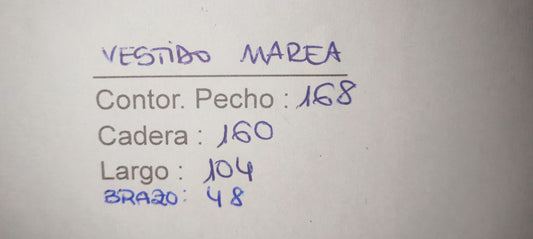 VESTIDO MAREA
Contor. Pecho : 168
Cadera : 160
Largo : 104
BRAZO: 48